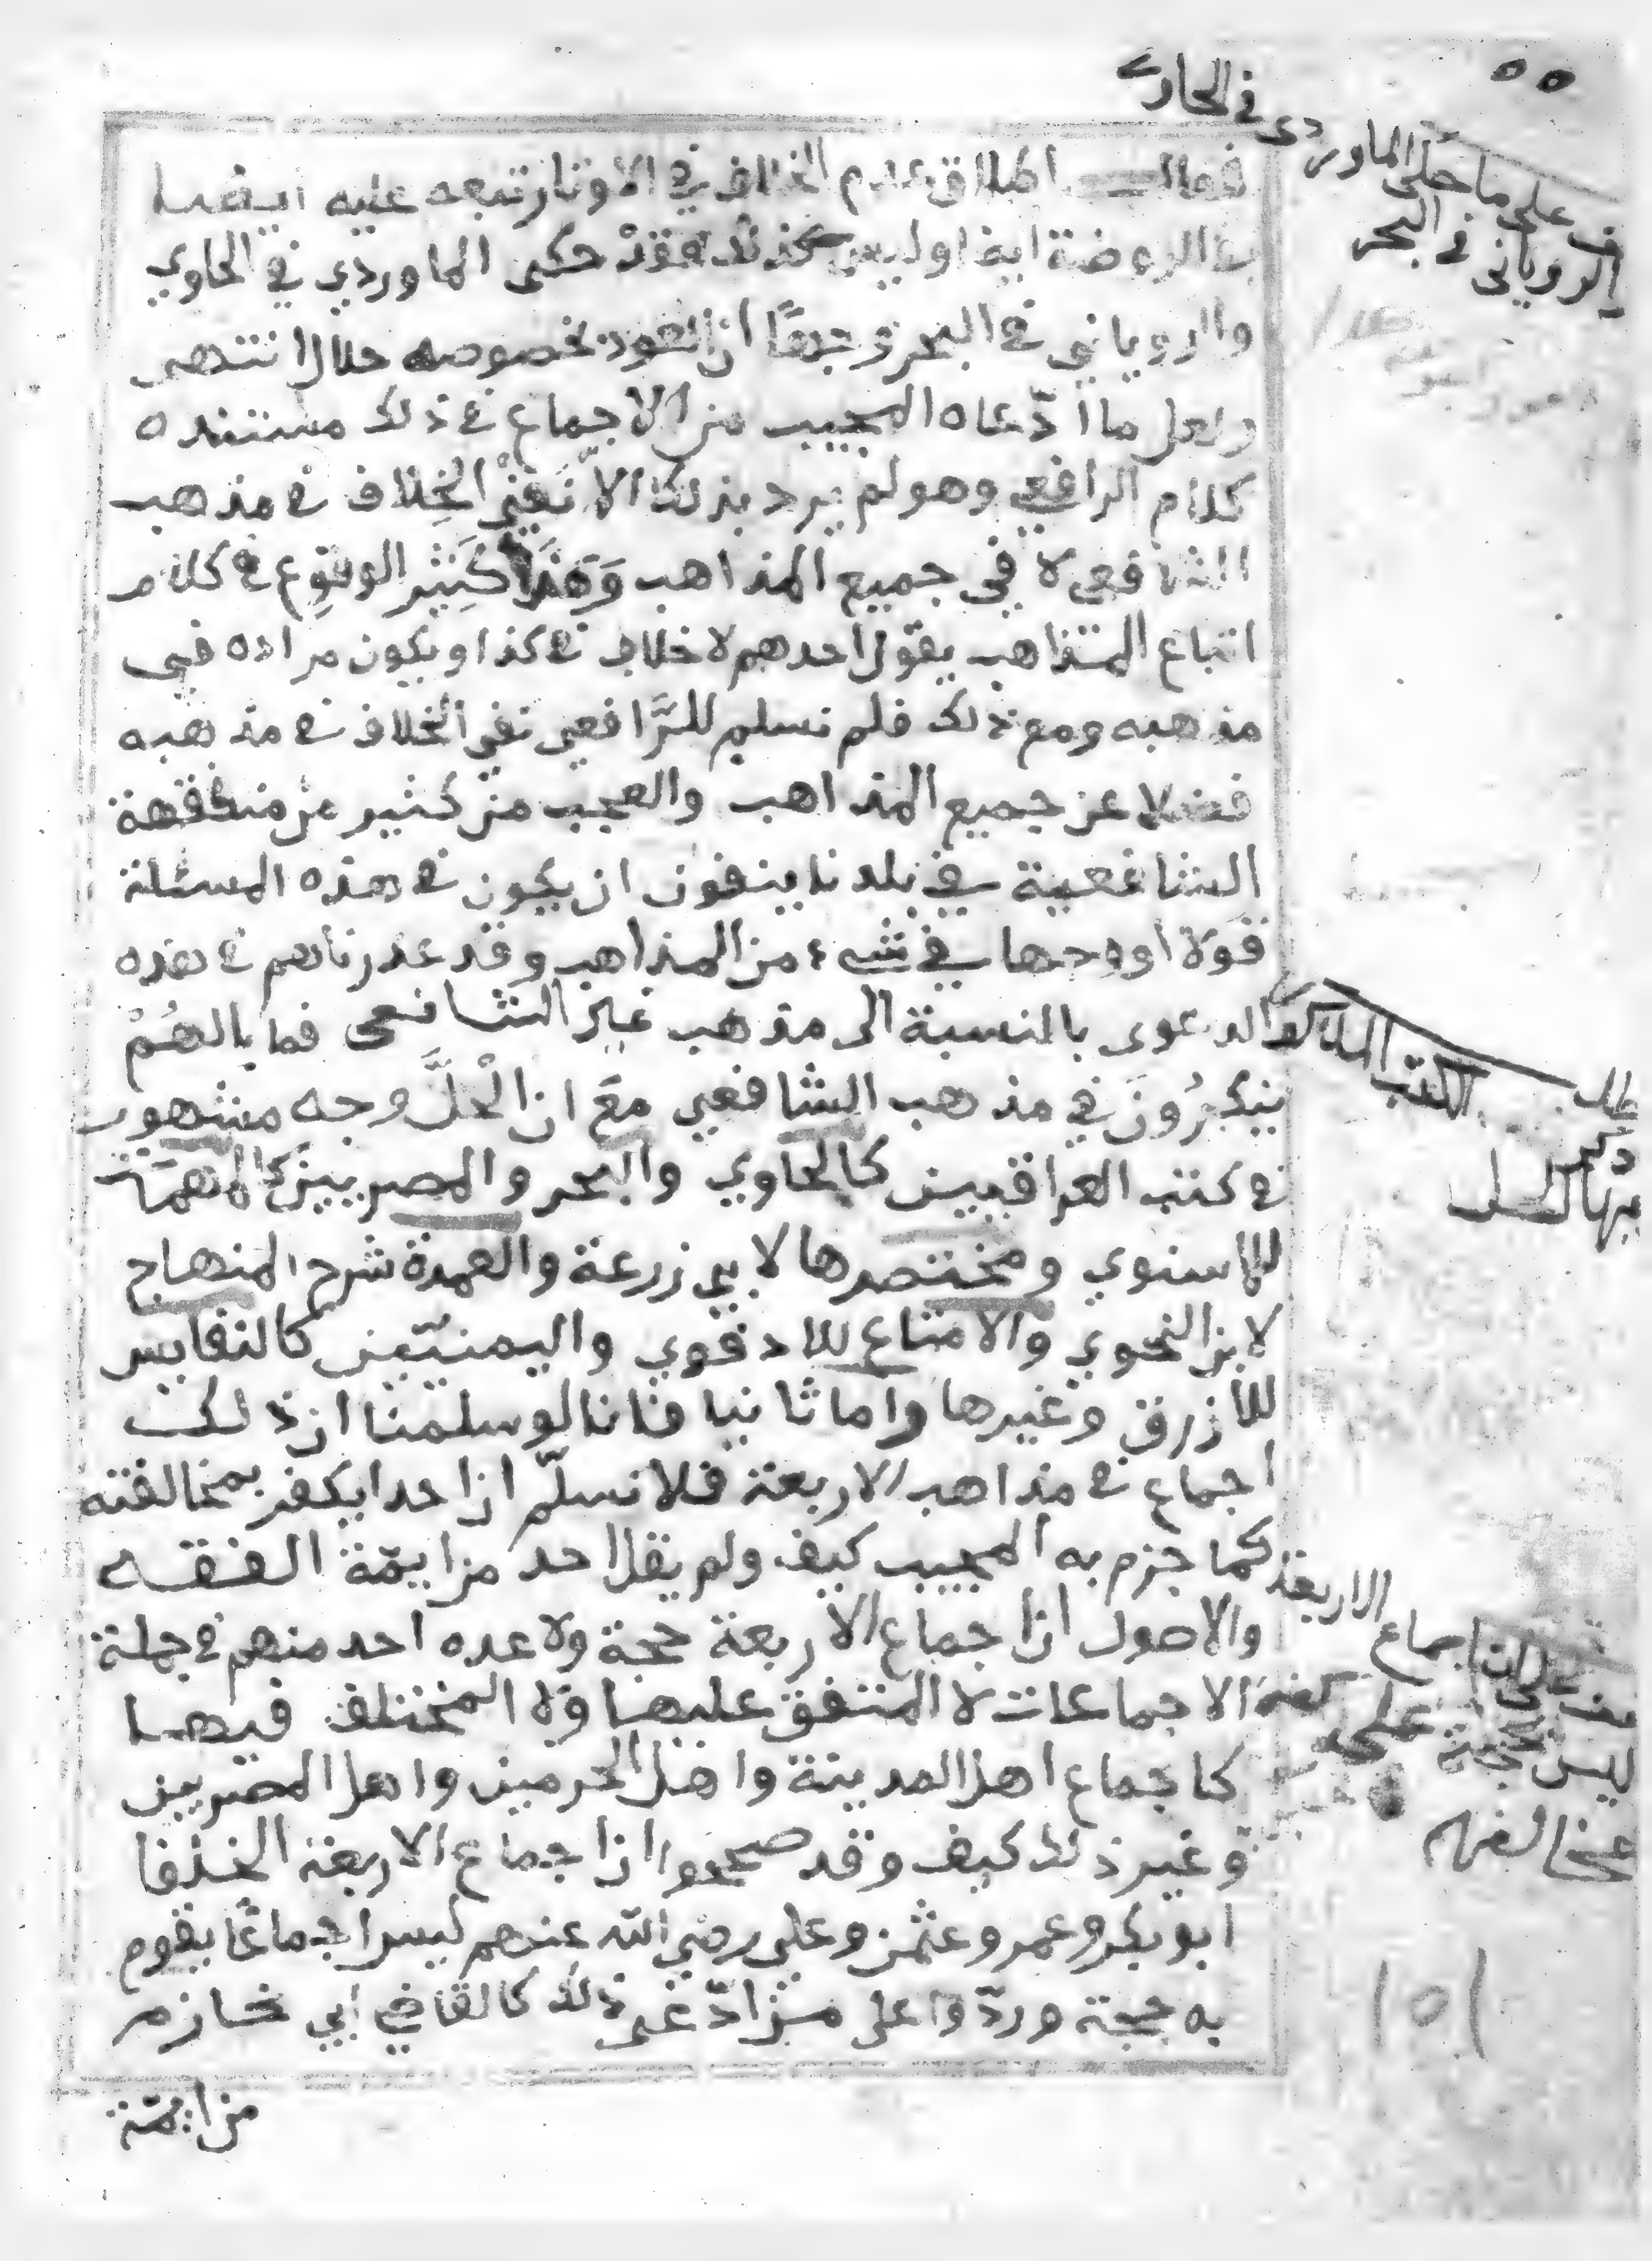 ٥٥
في الحاوي
على ما حكى الماوردي
الروياني في البحر
اطلاق عدم الخلاف في الاوتار تبعه عليه ايضا
الروضة ايضا وليس كذلك فقد حكى الماوردي في الحاوي
والروياني في البحر وجها ان العود بخصوصه حلال انتهى
ولعل ما ادّعاه المجيب من الاجماع في ذلك مستنده
كلام الرافعي وهو لم يرد بذلك الا نفي الخلاف في مذهب
الشافعي لا في جميع المذاهب وَهَذَا كَثِير الوقوع في كلام
اتباع المذاهب يقول احدهم لا خلاف في كذا ويكون مراده في
مذهبه ومع ذلك فلم نسلم للرَّافعي نفي الخلاف في مذهبه
فضلا عن جميع المذاهب والعجب من كثير من متفقهة
الشافعية في بلدنا ينفون ان يكون في هذه المسئلة
قولا او وجها في شيء من المذاهب وقد عذرناهم في هذه
الدعوى بالنسبة الى مذهب غير الشافعي فما بالهُمْ
ينكرُونَ في مذهب الشافعي مَعَ ان الْحلَّ وجه مشهور
في كتب العراقيين كالحاوي والبحر والمصريين كالمهمّات
للاسنوي ومختصرها لابي زرعة والعمدة شرح المنهاج
لابن النحوي والامتاع للادفوي واليمنيّين كالنفايس
للازرق وغيرها واما ثانيا فانا لو سلمنا ان ذلك
اجماع في مذاهب الاربعة فلا نسلّم ان احدا يكفر بمخالفته
كما جزم به المجيب كيف ولم يقل احد من ايمّة الفقه
والاصول ان اجماع الاربعة حجة ولا عده احد منهم في جملة
الاجماعات لا المتفق عليها ولا المختلف فيها
كاجماع اهل المدينة واهل الحرمين واهل المصريين
وغير ذلك كيف وقد صححوا ان اجماع الاربعة الخلفا
ابو بكر وعمر وعثمن وعلي رضي الله عنهم ليس اجماعًا يقوم
به حجة وردّوا على من ادّعى ذلك كالقاضي ابي خازم
من ايمّة
الكتب
ذكر
فيها الحل
على ان اجماع الاربعة
ليس بحجة على
مخالفهم
١٥١